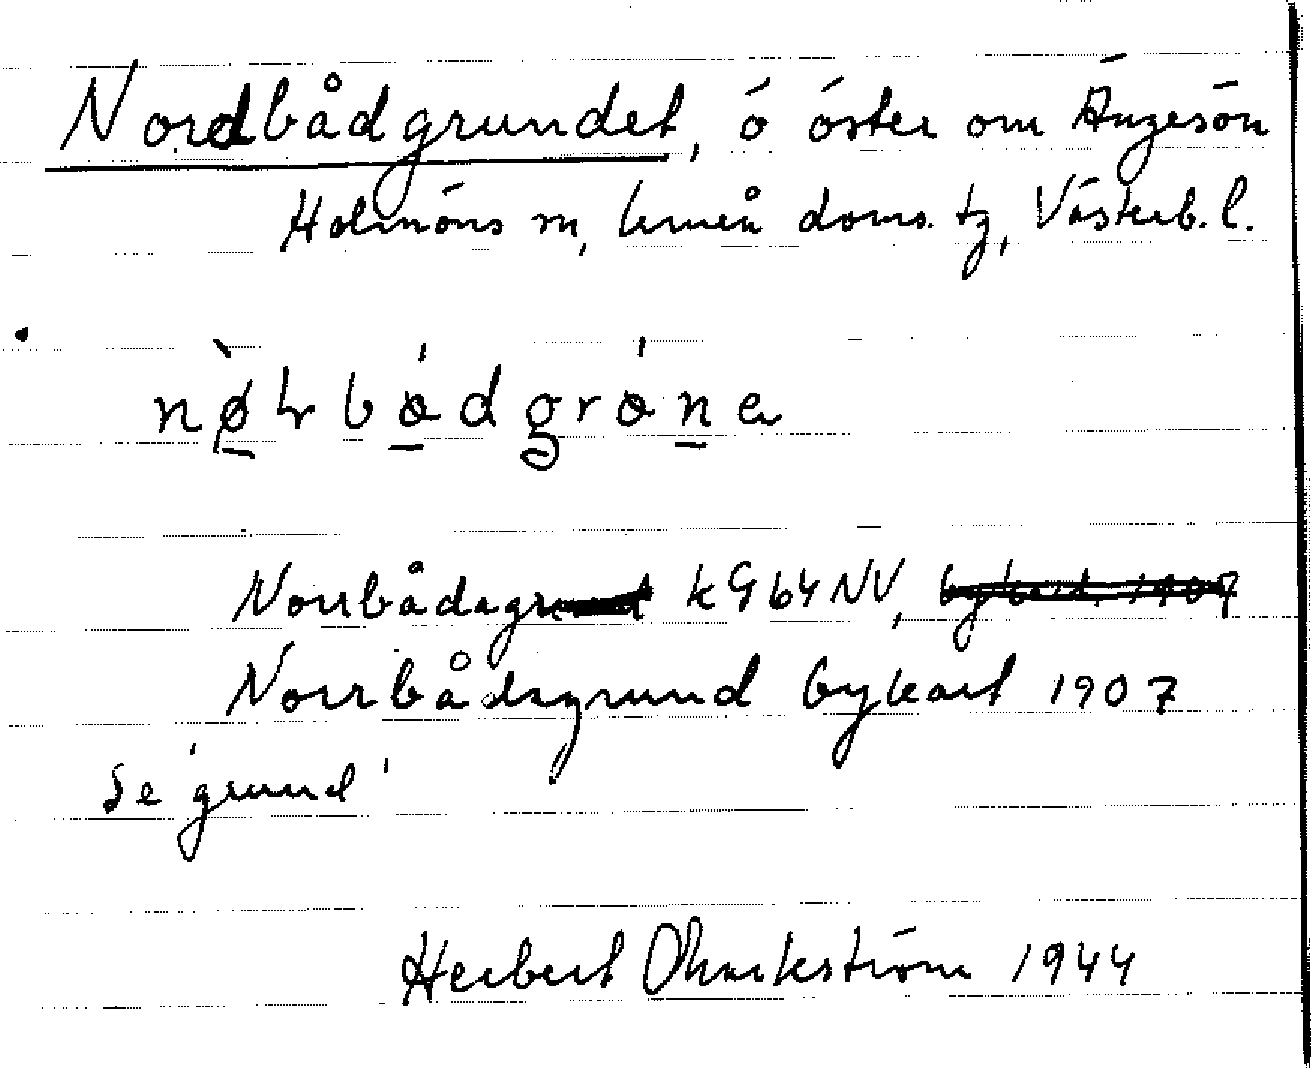 Nordbådgrundet, ö öster om Ängesön
Holmöns sn, Umeå doms. tg, Västerb. l.
Norrbådagrund k G 64 NV, bykart 1907
Norrbådagrund bykart 1907
Se 'grund'
Herbert 1944